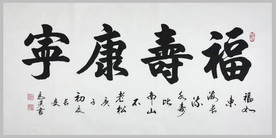 福壽康寧
福如
東
海長
流
水壽
比
南山
不
老松
庚
子
初夏